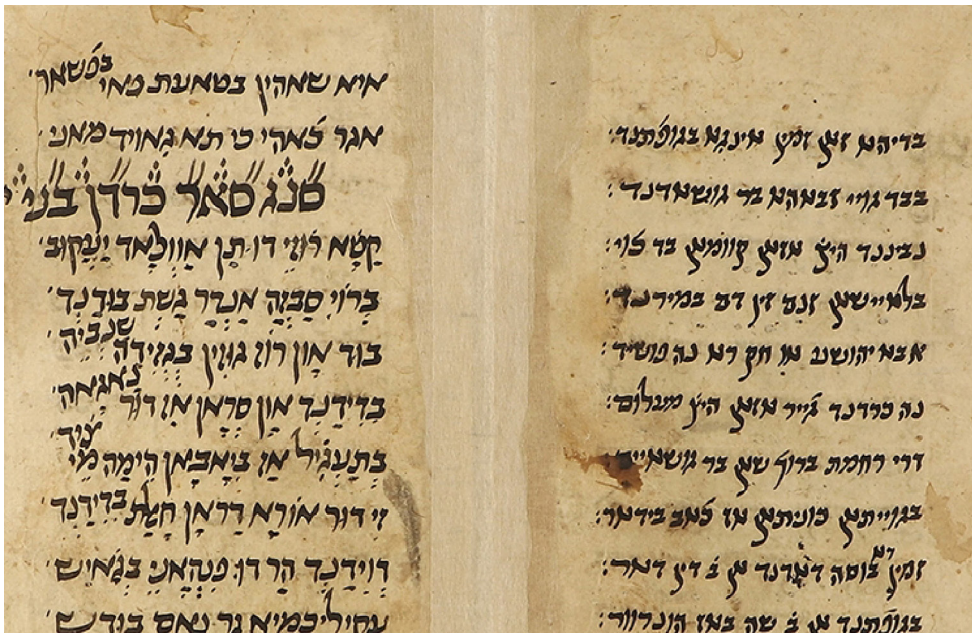 בדיהא זאן זמין אינגא בגופתנד:
בבד גויי זבאהא בר גושאדנד:
נבינבד היץ אזאן קוומאן בד כוי:
בלאיישאן זנם זין דם במירנד:
אבא יהושע אן חק רא נה פושיד:
נה כרדנד גייר אזאן היץ מגלום:
דרי רחמת ברוך שאן בר גושאייד:
בגוייתאן כוניתאן אז כאב בידאר:
זמין רא בוסה דאדנד אן ב דין דאר:
בגופתנד אן ב שה באז הונרוור:
איא שאהין בטאעת פאי בפשאר
אגר כאהי כי תא גאויד מאני
סנג סאר כרדן בני
קטא רוזי דו תן אוולאד יעקוב
ברוי סבזה אנדר גשת בודנד
בוד און רוז גוזין בגזידה שנביה
בדידנד און סראן אז דור נאגאה
בתעגיל אז ביאבאן הימה מי ציד
זי דור אורא דראן חאלת בדידנד
דוידנד הר דו פנהאני בגאיש
נאם בודש